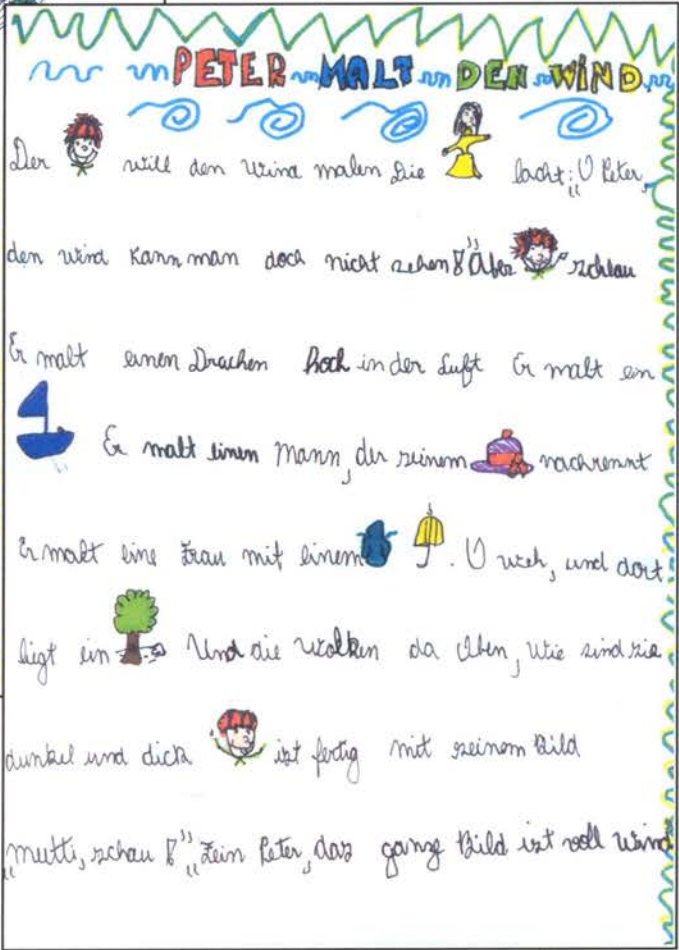 PETER MALT DEN WIND
Der will den Wind malen Die lacht: „O Peter,
den wind kann man doch nicht sehen!" Aber schlau
Er malt einen Drachen hoch in der Luft Er malt ein
Er malt einen Mann, der seinem nachrennt
Er malt eine Frau mit einem . O weh, und dort
liegt ein Und die Wolken da Oben, Wie sind sie
dunkel und dick ist fertig mit seinem Bild
„Mutti, schau!" „Fein Peter, das ganze Bild ist voll wind